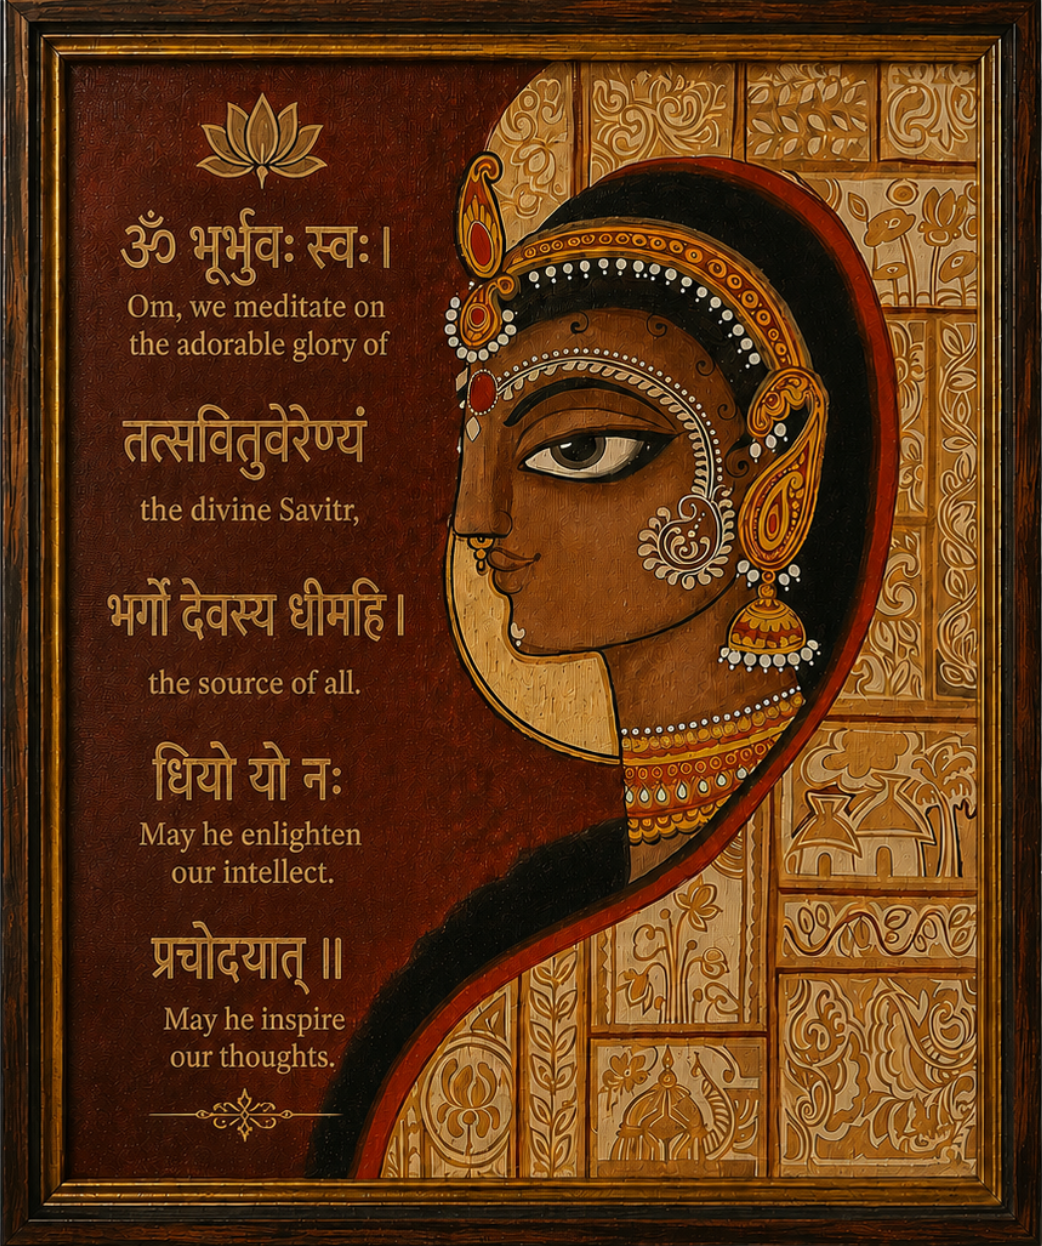 ॐ भूर्भुवः स्वः।
Om, we meditate on
the adorable glory of
तत्सवितुवेरेण्यं
the divine Savitr,
भर्गो देवस्य धीमहि।
the source of all.
धियो यो नः
May he enlighten
our intellect.
प्रचोदयात् ॥
May he inspire
our thoughts.